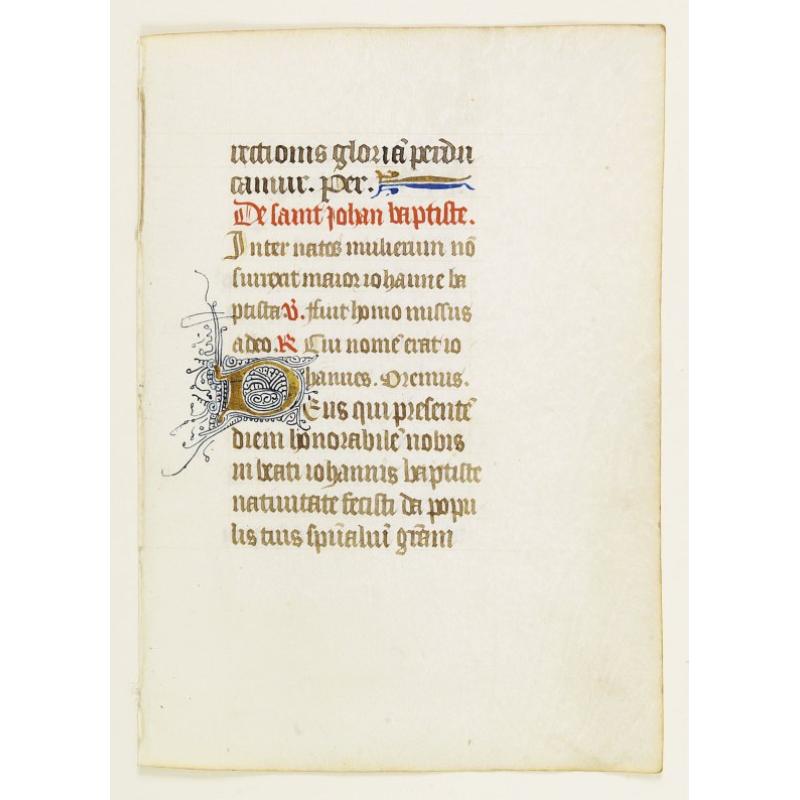 rectionis gloriā perdu
camur. Per.
De saint Johan baptiste.
Inter natos mulierum nō
surrexit maior iohanne ba
ptista V. ffuit homo missus
a deo. R Cui nomē erat io
hannes. Oremus.
Deus qui presentē
diem honorabilē nobis
in beati iohannis baptiste
natiuitate fecisti da popu
lis tuis spūaliū grām